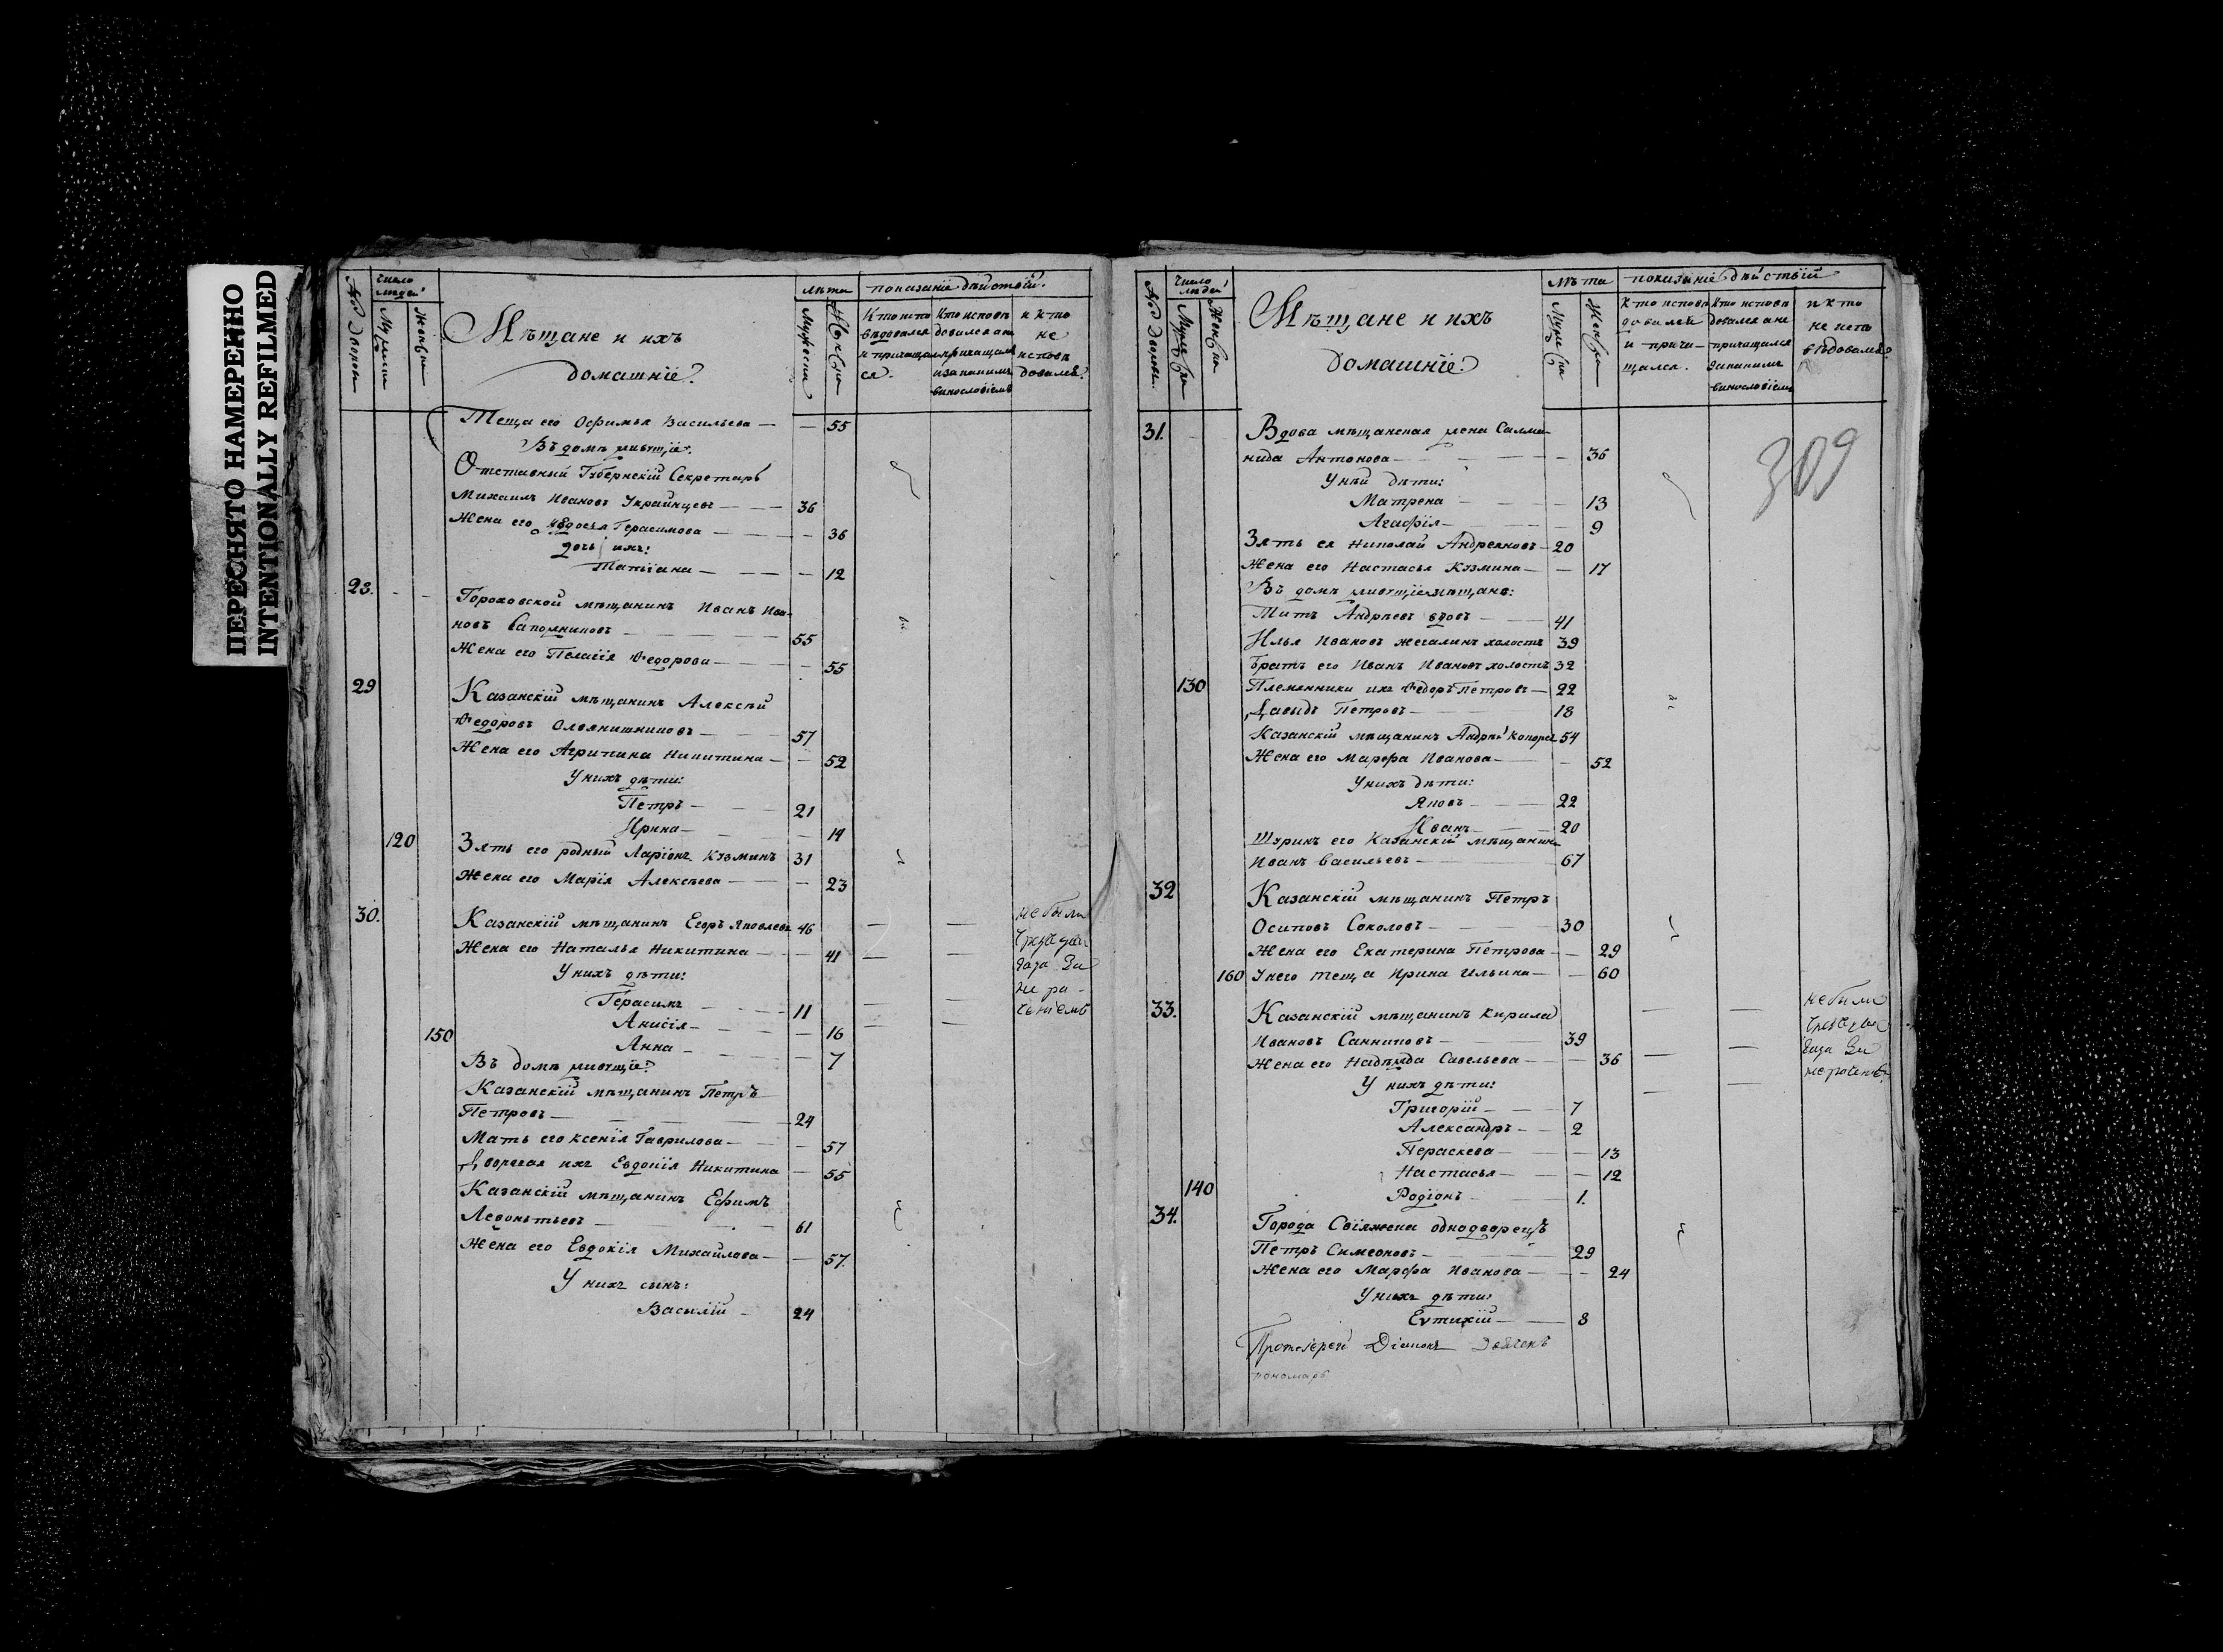 ПЕРЕСНЯТО НАМЕРЕННО
INTENTIONALLY REFILMED
№ Дворовъ
Число людей
Мужеска
Женска
Мѣщане и ихъ
домашніе.
лѣта
Мужеска
Женска
показаніе дѣйствій.
Кто испо
вѣдовался
и причащал
ся.
Кто исповѣ
довался а не
причащался
и за какимъ
винословіемъ
и кто
не
исповѣ
довался.
Теща его Офимья Васильева — — 55
Въ домѣ живущіе.
Отставный Губернскій Секретарь
Михаилъ Ивановъ Украйнцевъ — — 36
Жена его Ѳедосья Герасимова — — — 36
дочь ихъ:
Татьіана — — — 12
23. Гороховской мѣщанинъ Иванъ Ива-
новъ Сапожниковъ — 55
Жена его Пелагія Ѳедорова — — — 55
29 Казанскій мѣщанинъ Алексѣй
Ѳедоровъ Оловянишниковъ — 57
Жена его Агрипина Никитина — — 52
У нихъ дѣти:
Петръ — — 21
Ирина — — 19
120 Зять его родный Ларіонъ Кузминъ 31
Жена его Марія Алексѣева — — — 23
30. Казанскій мѣщанинъ Егоръ Яковлевъ 46 — — не были
Жена его Наталья Никитина — — 41 — —
У нихъ дѣти:
Герасимъ — — 11 — —
Анисія — — 16 — —
150 Анна — — 7
Въ домѣ живущіе:
Казанскій мѣщанинъ Петръ
Петровъ — 24
Мать его Ксенія Гаврилова — — — 57
Евдокія Никитина — 55
Казанскій мѣщанинъ Ефимъ
Леонтьевъ — 61
Жена его Евдокія Михайлова — — 57.
У нихъ сынъ:
Василій — 24
№ Дворовъ.
Число людей
Мужеска
Женска
Мѣщане и ихъ
домашніе.
Лѣта
Мужеска
Женска
показаніе дѣйствій
Кто исповѣ
довался
и прича-
щался.
Кто исповѣ
довался а не
причащался
за какимъ
винословіемъ
и кто
не испо
вѣдовался
309
31. Вдова мѣщанская жена Салма-
нида Антонова — — 36
У ней дѣти:
Матрена — — 13
Агафія — — 9
Зять ея Николай Андреяновъ — 20
Жена его Настасья Кузмина — — 17
Въ домѣ живущіе мѣщане:
Титъ Андреевъ вдовъ — 41
Илья Ивановъ Жегалинъ холостъ 39
Братъ его Иванъ Ивановъ холостъ 32
130 Племянники ихъ Ѳедоръ Петровъ — 22
Давыдъ Петровъ — 18
Казанскій мѣщанинъ Андрей 54
Жена его Марфа Иванова — — 52
У нихъ дѣти:
Яковъ — 22
Иванъ — 20
Шуринъ его Казанскій мѣщанинъ
Иванъ Васильевъ — 67
32 Казанскій мѣщанинъ Петръ
Осиповъ Соколовъ — 30
Жена его Екатерина Петрова — — 29
160 У него теща Ирина Ильина — — 60
33. Казанскій мѣщанинъ Кирила — — не были
Ивановъ Санниковъ — 39
Жена его Надежда Савельева — — 36 — —
У нихъ дѣти: — —
Григорій — 7
Александръ — 2
Пераскева — — 13
Настасья — — 12
140 Родіонъ — 1.
34. Города Свіяжска однодворецъ
Петръ Симеоновъ — 29
Жена его Марфа Иванова — — 24
У нихъ дѣти:
Евтихій — 8
Протоіерей Діаконъ
пономарь